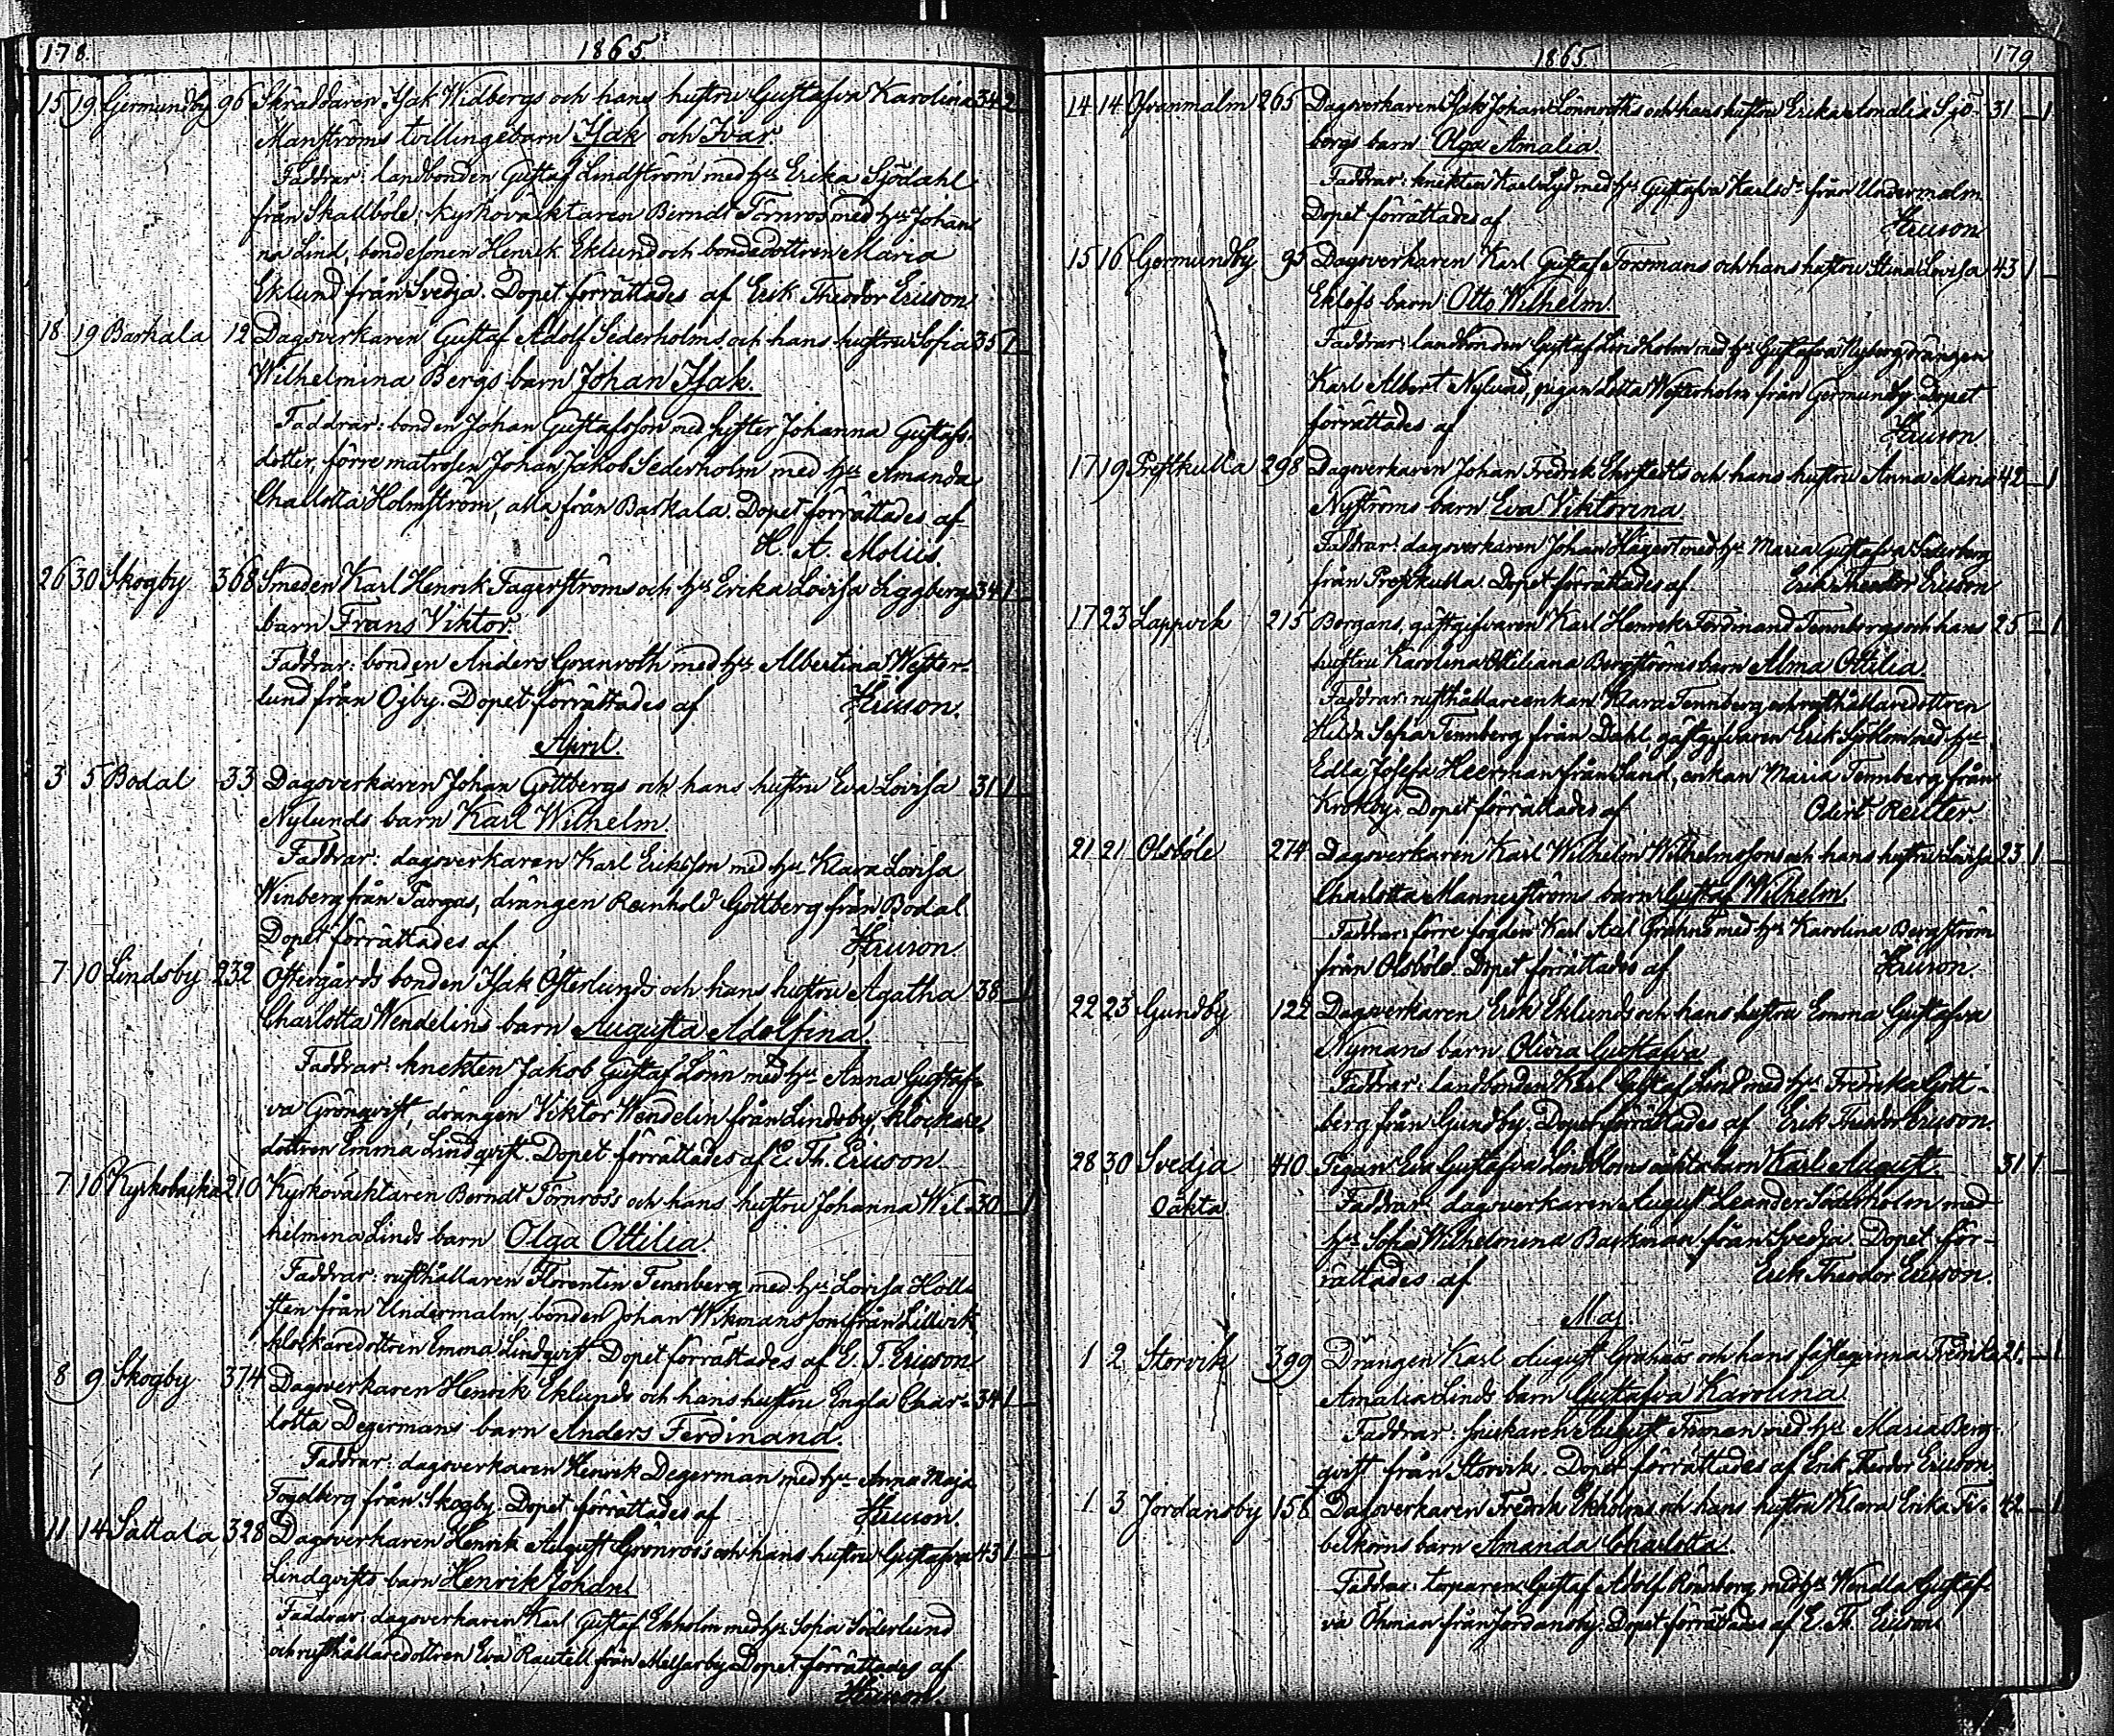 178. 1865.
15 19 Gjermundby 96 Skräddaren Isak Widbergs och hans hustru Gustafva Karolina 34 2
Manströms tvillingebarn Isak och Ivar.
Faddrar: landbonden Gustaf Lindström med hu Erika Sjödahl
från Skallböle, kyrkoväcktaren Berndt Törnroos med hu Johan-
na Lind, bondesonen Henrik Eklund och bondedottren Maria
Eklund från Svedja. Dopet förrättades af Erik Theodor Ericson
18 19 Baskala 12 Dagsverkaren Gustaf Adolf Sederholms och hans hustru Sofia 35 1
Wilhelmina Bergs barn Johan Isak.
Faddrar: bonden Johan Gustafsson med syster Johanna Gustafs-
dotter, förre matrosen Johan Jakob Sederholm med hu Amanda
Charlotta Holmström, alla från Baskala. Dopet förrättades af
H. A. Moliis.
26 30 Skogby 368 Smeden Karl Henrik Fagerströms och hu Erika Lovisa Liggbergs 34 1
barn Frans Viktor.
Faddrar: bonden Anders Granroth med hu Albertina Wester-
lund från Öjby. Dopet förrättades af Ericson.
April.
3 5 Bodal 33 Dagsverkaren Johan Gottbergs och hans hustru Eva Lovisa 31 1
Nylunds barn Karl Wilhelm
Faddrar: dagsverkaren Karl Eriksson med hu Klara Lovisa
Winberg från Fargas, drängen Reinhold Gottberg från Bodal
Dopet förrättades af Ericson
7 10 Lindsby 232 Östergårds bonden Isak Österlunds och hans hustru Agatha 38 1
Charlotta Wendelins barn Augusta Adolfina.
Faddrar: knekten Jakob Gustaf Lönn med hu Anna Gustaf-
va Grönqvist, drängen Viktor Wendelin från Lindsby, klockare-
dottren Emma Lindqvist. Dopet förrättades af E. Th. Ericson
7 16 Kyrkobacka 210 Kyrkoväcktaren Berndt Törnroos's och hans hustru Johanna Wil- 30 1
helmina Linds barn Olga Ottilia.
Faddrar: rusthållaren Florentin Tennberg med hu Lovisa Holl-
sten från Undermalm, bonden Johan Wikmansson från Lillvik,
klockaredottren Emma Lindqvist. Dopet förrättades af E. T. Ericson
8 9 Skogby 374 Dagsverkaren Henrik Eklunds och hans hustru Engla Char- 34 1
lotta Degermans barn Anders Ferdinand.
Faddrar: dagsverkaren Henrik Degerman med hu Anna Maja
Fogelberg från Skogby. Dopet förrättades af Ericson.
11 14 Sattala 328 Dagsverkaren Henrik August Grönroos's och hans hustru Gustafva 43 1
Lindqvists barn Henrik Johan
Faddrar: dagsverkaren Karl Gustaf Ekholm med hu Sofia Söderlund
och rusthållaredottren Eva Rautell från Meltjarby. Dopet förrättades af
Ericson.
1865. 179
14 14 Ofvanmalm 265 Dagsverkaren Isak Johan Lönnroths och hans hustru Erika Amalia Sjö- 31 1
bergs barn Olga Amalia.
Faddrar: knekten Karl Lyd med hu Gustafva Karlsdr från Undermalm
Dopet förrättades af Ericson
15 16 Germundby 95 Dagsverkaren Karl Gustaf Forsmans och hans hustru Stina Lovisa 43 1
Eklöfs barn Otto Wilhelm.
Faddrar: landbonden Gustaf Lindholm med hu Gustafva Nyberg, drängen
Karl Albert Nylund, pigan Lotta Westerholm från Germundby. Dopet
förrättades af Ericson
17 19 Prestkulla 298 Dagsverkaren Johan Fredrik Ehrstedts och hans hustru Anna Maria 42 1
Nyströms barn Eva Viktorina.
Faddrar: dagsverkaren Johan Hägert med hu Maria Gustafva Söderberg
från Prestkulla. Dopet förrättades af Erik Theodor Ericson
17 23 Lappvik 215 Borgans, gästgifvaren Karl Henrik Ferdinand Tennbergs och hans 25 1
hustru Karolina Ottiliana Bergströms barn Alma Ottilia
Faddrar: rusthållareenkan Klara Tennberg och rusthållaredottren
Hilda Sofia Tennberg från Dahl, gästgifvaren Erik Sjöblom med hu
Edla Josefa Heerman från Sand, enkan Maria Tennberg från
Krokby. Dopet förrättades af Odert Reuter.
21 21 Olsböle 274 Dagsverkaren Karl Wilhelm Wilhelmssons och hans hustru Lovisa 23 1
Charlotta Mannerströms barn Gustaf Wilhelm.
Faddrar: förre fogden Karl Axel Grahns med hu Karolina Bergström
från Olsböle. Dopet förrättades af Ericson.
22 23 Gundby 122 Dagsverkaren Erik Eklunds och hans hustru Emma Gustafva
Nymans barn Olivia Gustafva
Faddrar: landbonden Karl Gustaf Lind med hu Fredrika Gott-
berg från Gundby. Dopet förrättades af Erik Theodor Ericson.
28 30 Svedja 410 Pigan Eva Gustafva Lindbloms oäkta barn Karl August. 31 1
Oäkta Faddrar: dagsverkaren August Leander Söderholm med
hu Sofia Wilhelmina Backman från Svedja. Dopet för-
rättades af Erik Theodor Ericson.
Maj.
1 2 Storvik 399 Drängen Karl August Grahns och hans fästeqvinna Fredrika 21 1
Amalia Linds barn Gustafva Karolina.
Faddrar: August Firman med hu Maria Berg-
qvist från Storvik. Dopet förrättades af Erik Theodor Ericson.
1 3 Jordansby 156 Dagsverkaren Fredrik Ekholms och hans hustru Klara Erika Fi- 42 1
belkorns barn Amanda Charlotta.
Faddrar: torparen Gustaf Adolf Rönnberg med hu Wendla Gustaf-
va Öhman från Jordansby. Dopet förrättades af E. Th. Ericson.